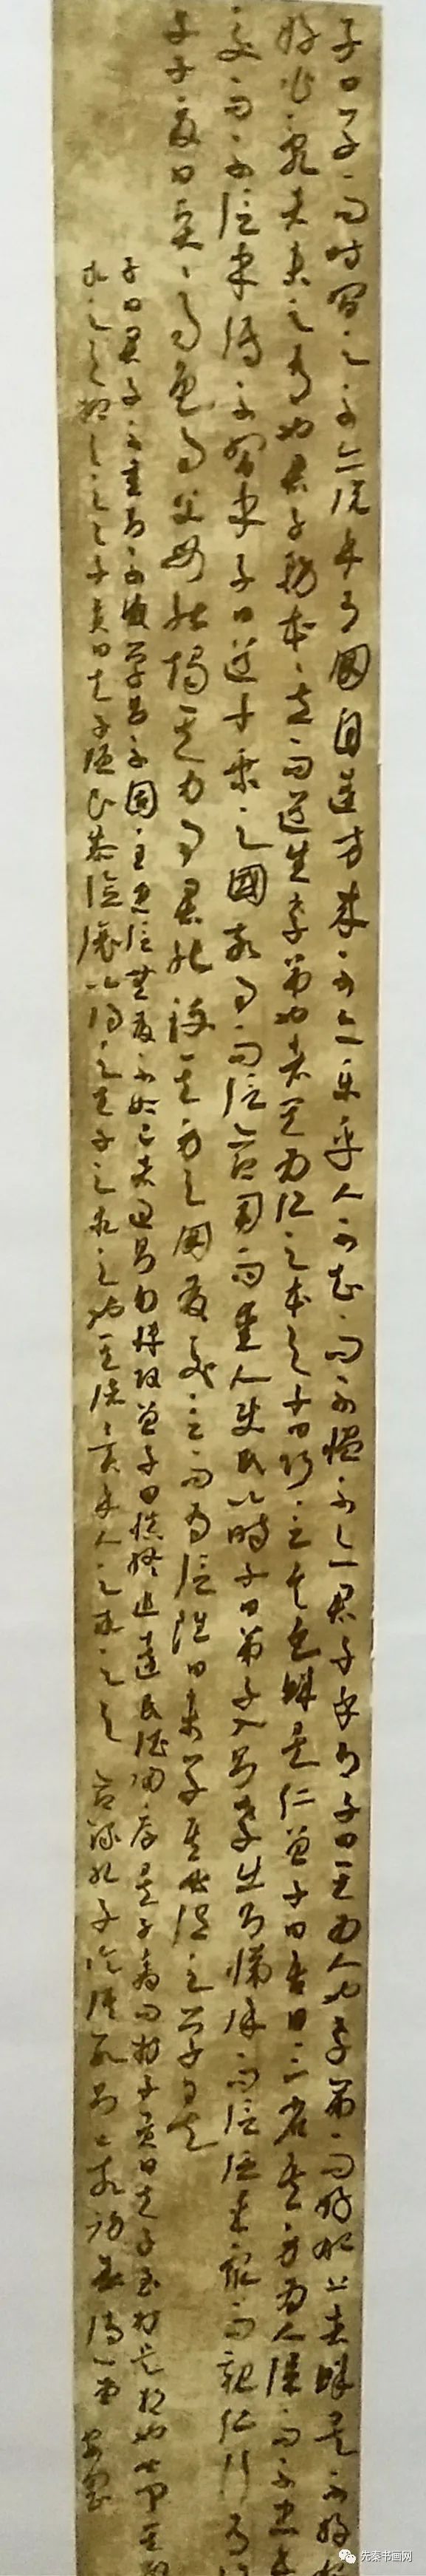 子曰學而時習之不亦說乎有朋自遠方來不亦樂乎人不知而不慍不亦君子乎有子曰其為人也孝弟而好犯上者鮮矣不好犯
好作亂者未之有也君子務本本立而道生孝弟也者其為仁之本與子曰巧言令色鮮矣仁曾子曰吾日三省吾身為人謀而不忠乎
交而不信乎傳不習乎子曰道千乘之國敬事而信節用而愛人使民以時子曰弟子入則孝出則悌謹而信汎愛眾而親仁行有餘
子夏曰賢賢易色事父母能竭其力事君能致其身與朋友交言而有信雖曰未學吾必謂之學矣
子曰君子不重則不威學則不固主忠信無友不如己者過則勿憚改曾子曰慎終追遠民德歸厚矣子禽問於子貢曰夫子至於是邦也必聞其政
求之與抑與之與子貢曰夫子溫良恭儉讓以得之夫子之求之也其諸異乎人之求之與 節錄孔子論語
先秦书画网